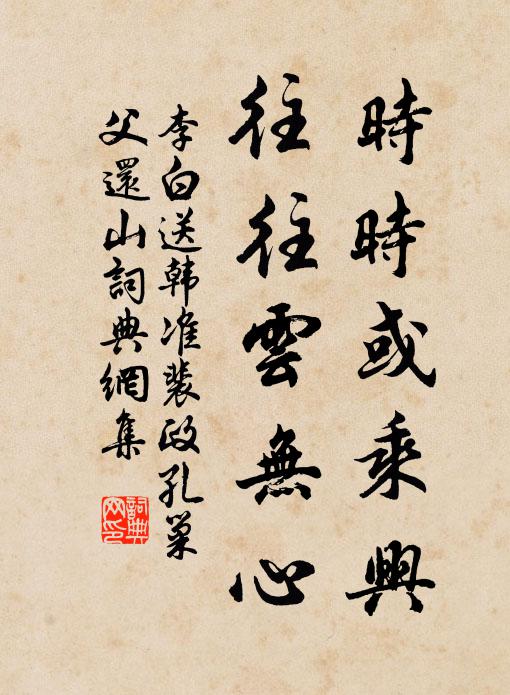 時時或乘興
往往雲無心
李白送韩准裴政孔巢
父還山詞典網集
詞典
网印